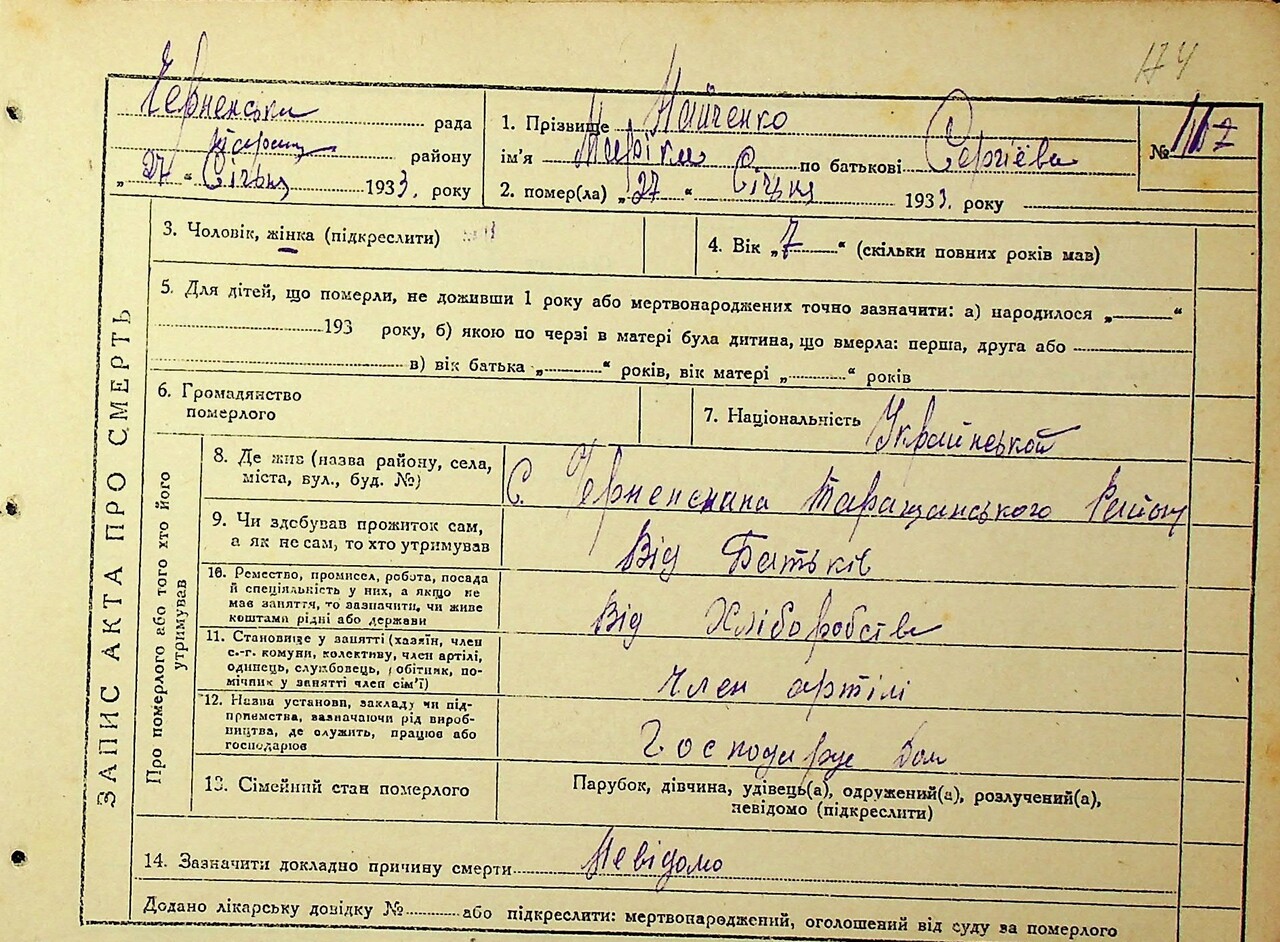 174
Черненська рада
Таращ району
„ 27 “ Січня 1933. року
1. Прізвище Майченко
ім'я Маріка по батькові Сергієва
2. помер(ла) „ 27 “ Січня 1933. року
№ 117
ЗАПИС АКТА ПРО СМЕРТЬ
3. Чоловік, жінка (підкреслити)
4. Вік „ 7 “ (скільки повних років мав)
5. Для дітей, що померли, не доживши 1 року або мертвонароджених точно зазначити: а) народилося „ “
193 року, б) якою по черзі в матері була дитина, що вмерла: перша, друга або
в) вік батька „ “ років, вік матері „ “ років
6. Громадянство
померлого
7. Національність Українськой
Про померлого або того хто його
утримував
8. Де жив (назва району, села,
міста, вул., буд. №)
С. Таращанського Району
9. Чи здобував прожиток сам,
а як не сам, то хто утримував
Від Батьків
10. Ремество, промисел, робота, посада
й спеціяльність у них, а якщо не
мав заняття, то зазначити, чи живе
коштами рідні або держави
Від Хліборобства
11. Становище у занятті (хазяїн, член
с.-г. комуни, колективу, член артілі,
одинець, службовець, робітник, по-
мічник у занятті член сім'ї)
Член артілі
12. Назва установи, закладу чи під-
приємства, зазначаючи рід вироб-
ництва, де служить, працює або
господарює
Господарує Дом
13. Сімейний стан померлого
Парубок, дівчина, удівець(а), одружений(а), розлучений(а),
невідомо (підкреслити)
14. Зазначити докладно причину смерти Невідомо
Додано лікарську довідку № або підкреслити: мертвонароджений, оголошений від суду за померлого